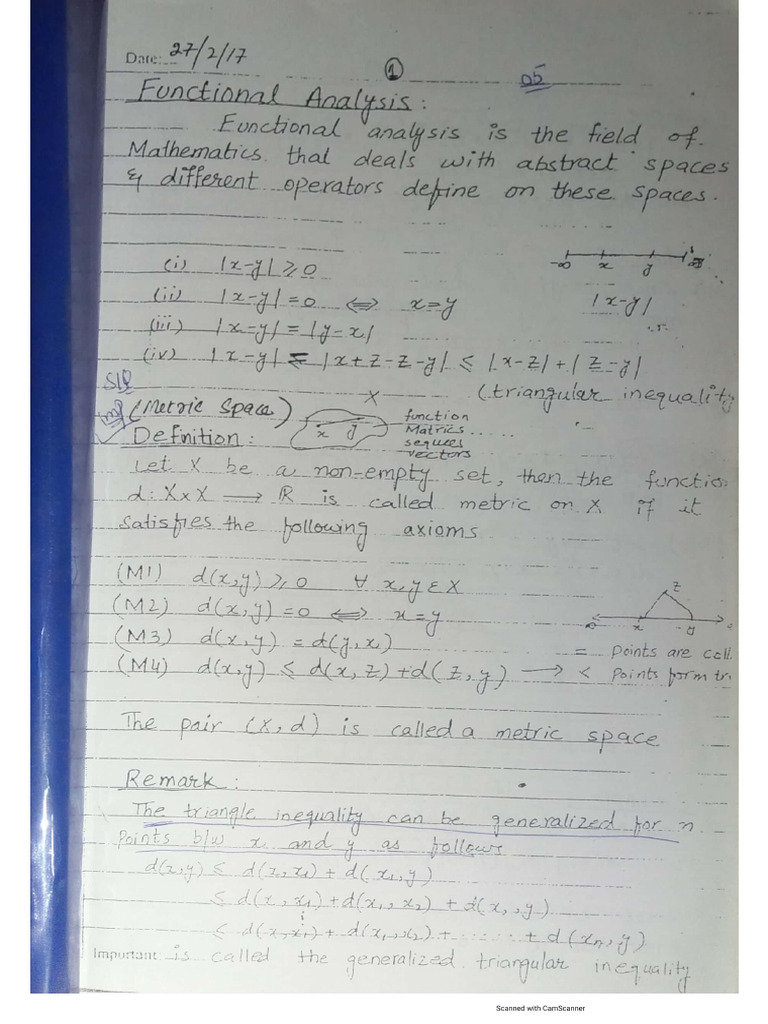 Date: 27/2/17
1
05
Functional Analysis:
Functional analysis is the field of
Mathematics that deals with abstract spaces
& different operators define on these spaces.
(i) |x-y| ≥ 0
-∞ x y ∞
(ii) |x-y| = 0 ⟺ x = y
|x-y|
(iii) |x-y| = |y-x|
(iv) |x-y| = |x+z-z-y| ≤ |x-z| + |z-y|
(triangular inequality
(Metric Space)
X
Definition:
x y
function
Matrics
sequces
vectors
Let X be a non-empty set, then the functio
d: X×X → ℝ is called metric on X if it
satisfies the following axioms
(M1) d(x,y) ≥ 0 ∀ x,y ∈ X
(M2) d(x,y) = 0 ⟺ x = y
z
x y
(M3) d(x,y) = d(y,x)
= Points are coll.
(M4) d(x,y) ≤ d(x,z) + d(z,y) → < Points form tr.
The pair (X,d) is called a metric space
Remark:
The triangle inequality can be generalized for n
Points b/w x and y as follows
d(x,y) ≤ d(x,x₁) + d(x₁,y)
≤ d(x,x₁) + d(x₁,x₂) + d(x,,y)
≤ d(x,x₁) + d(x₁,x₂) + ...... + d(xn,y)
Important is called the generalized triangular inequality
Scanned with CamScanner